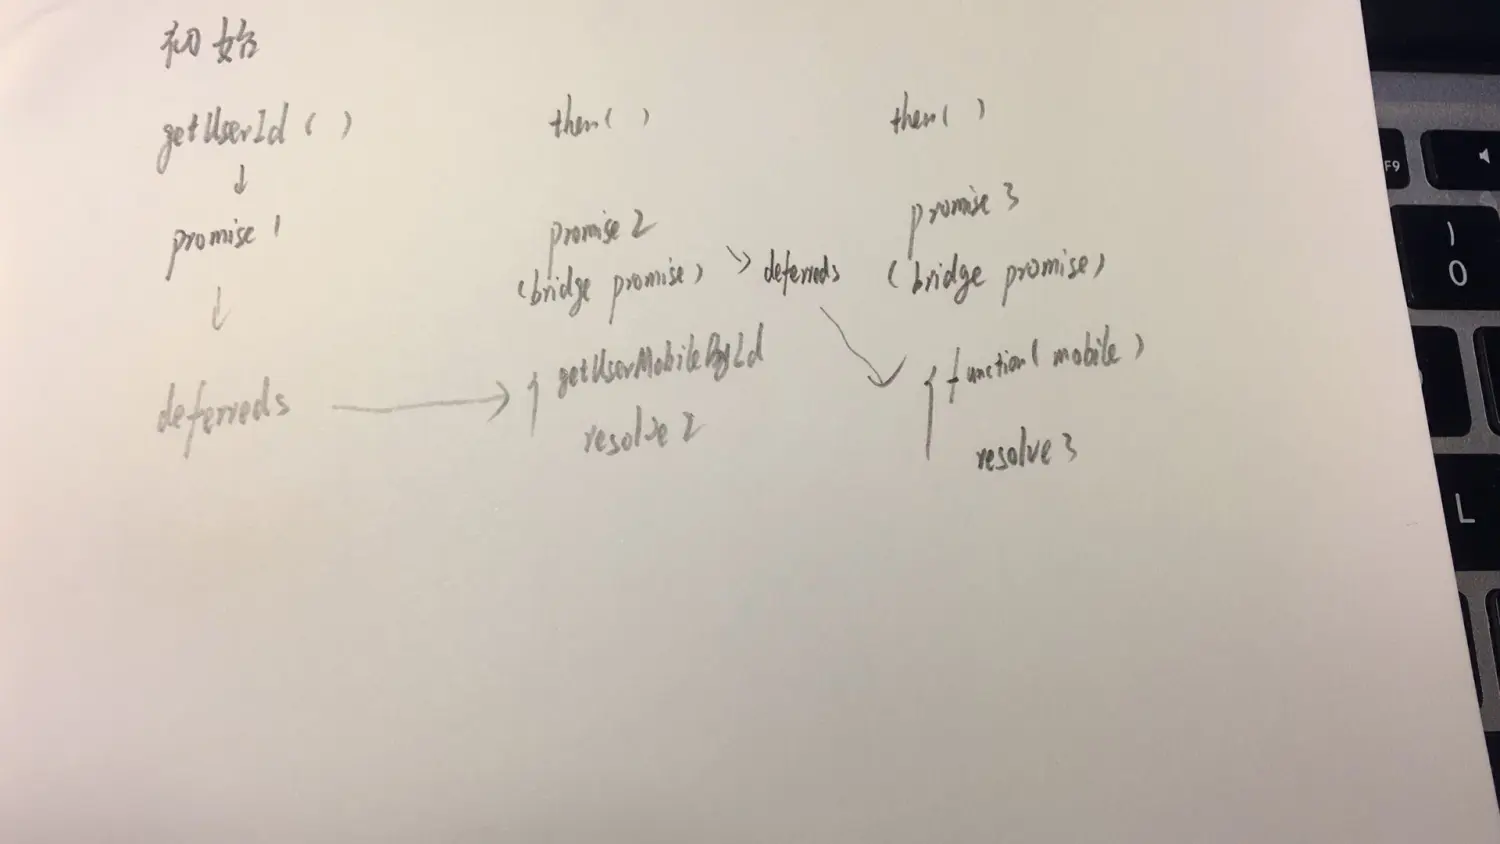 初始
getUserId ( )
then( )
then( )
promise 1
promise 2
(bridge promise)
deferreds
promise 3
(bridge promise)
deferreds
{ getUserMobileById
resolve 2
{ function( mobile )
resolve 3
F9
)
0
L